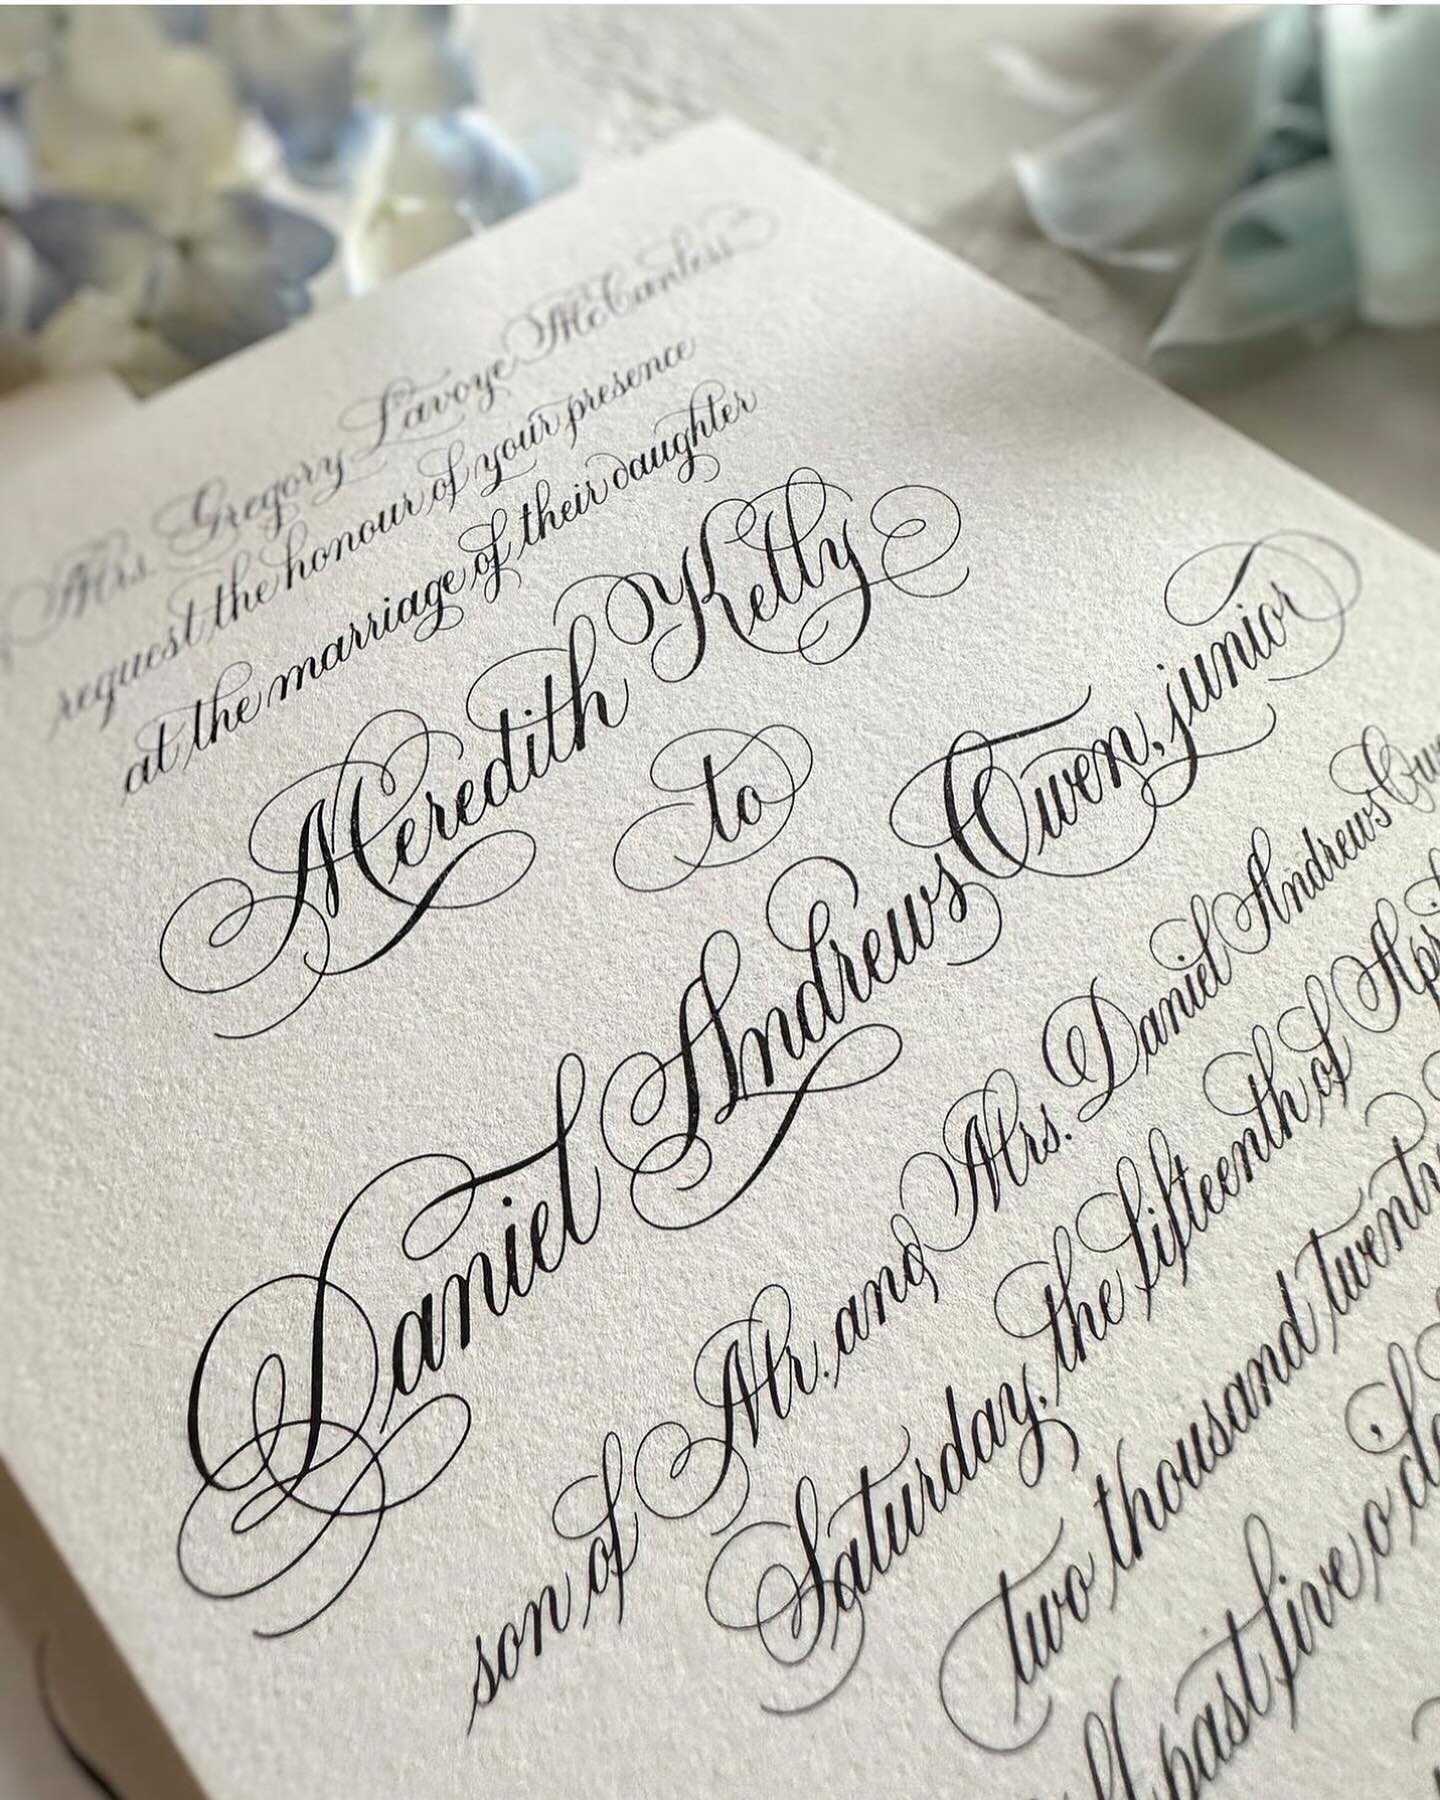 Mrs. Gregory Lavoye McCanless
request the honour of your presence
at the marriage of their daughter
Meredith Kelly
to
Daniel Andrews Owen, junior
son of Mr. and Mrs. Daniel Andrews
Saturday, the fifteenth of April
two thousand twenty
past five o'clo